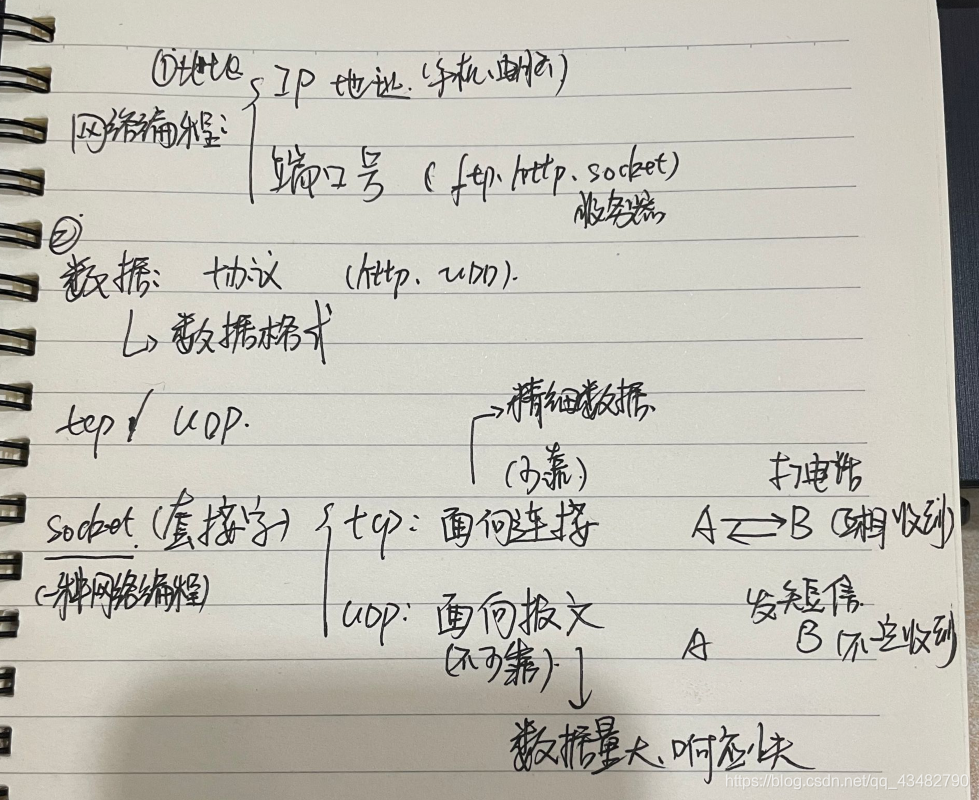 ①地址
IP 地址.(手机、电脑)
网络编程:
端口号 (ftp.http.socket)
服务器
②
数据: 协议 (http. UDP).
↳ 数据格式
tcp / UDP.
→精细数据.
(可靠)
打电话
socket (套接字) tcp: 面向连接 A ⇄ B (互相收到)
(一种网络编程)
发短信.
UDP: 面向报文 A B (不一定收到)
(不可靠).
数据量大、响应快
https://blog.csdn.net/qq_43482790